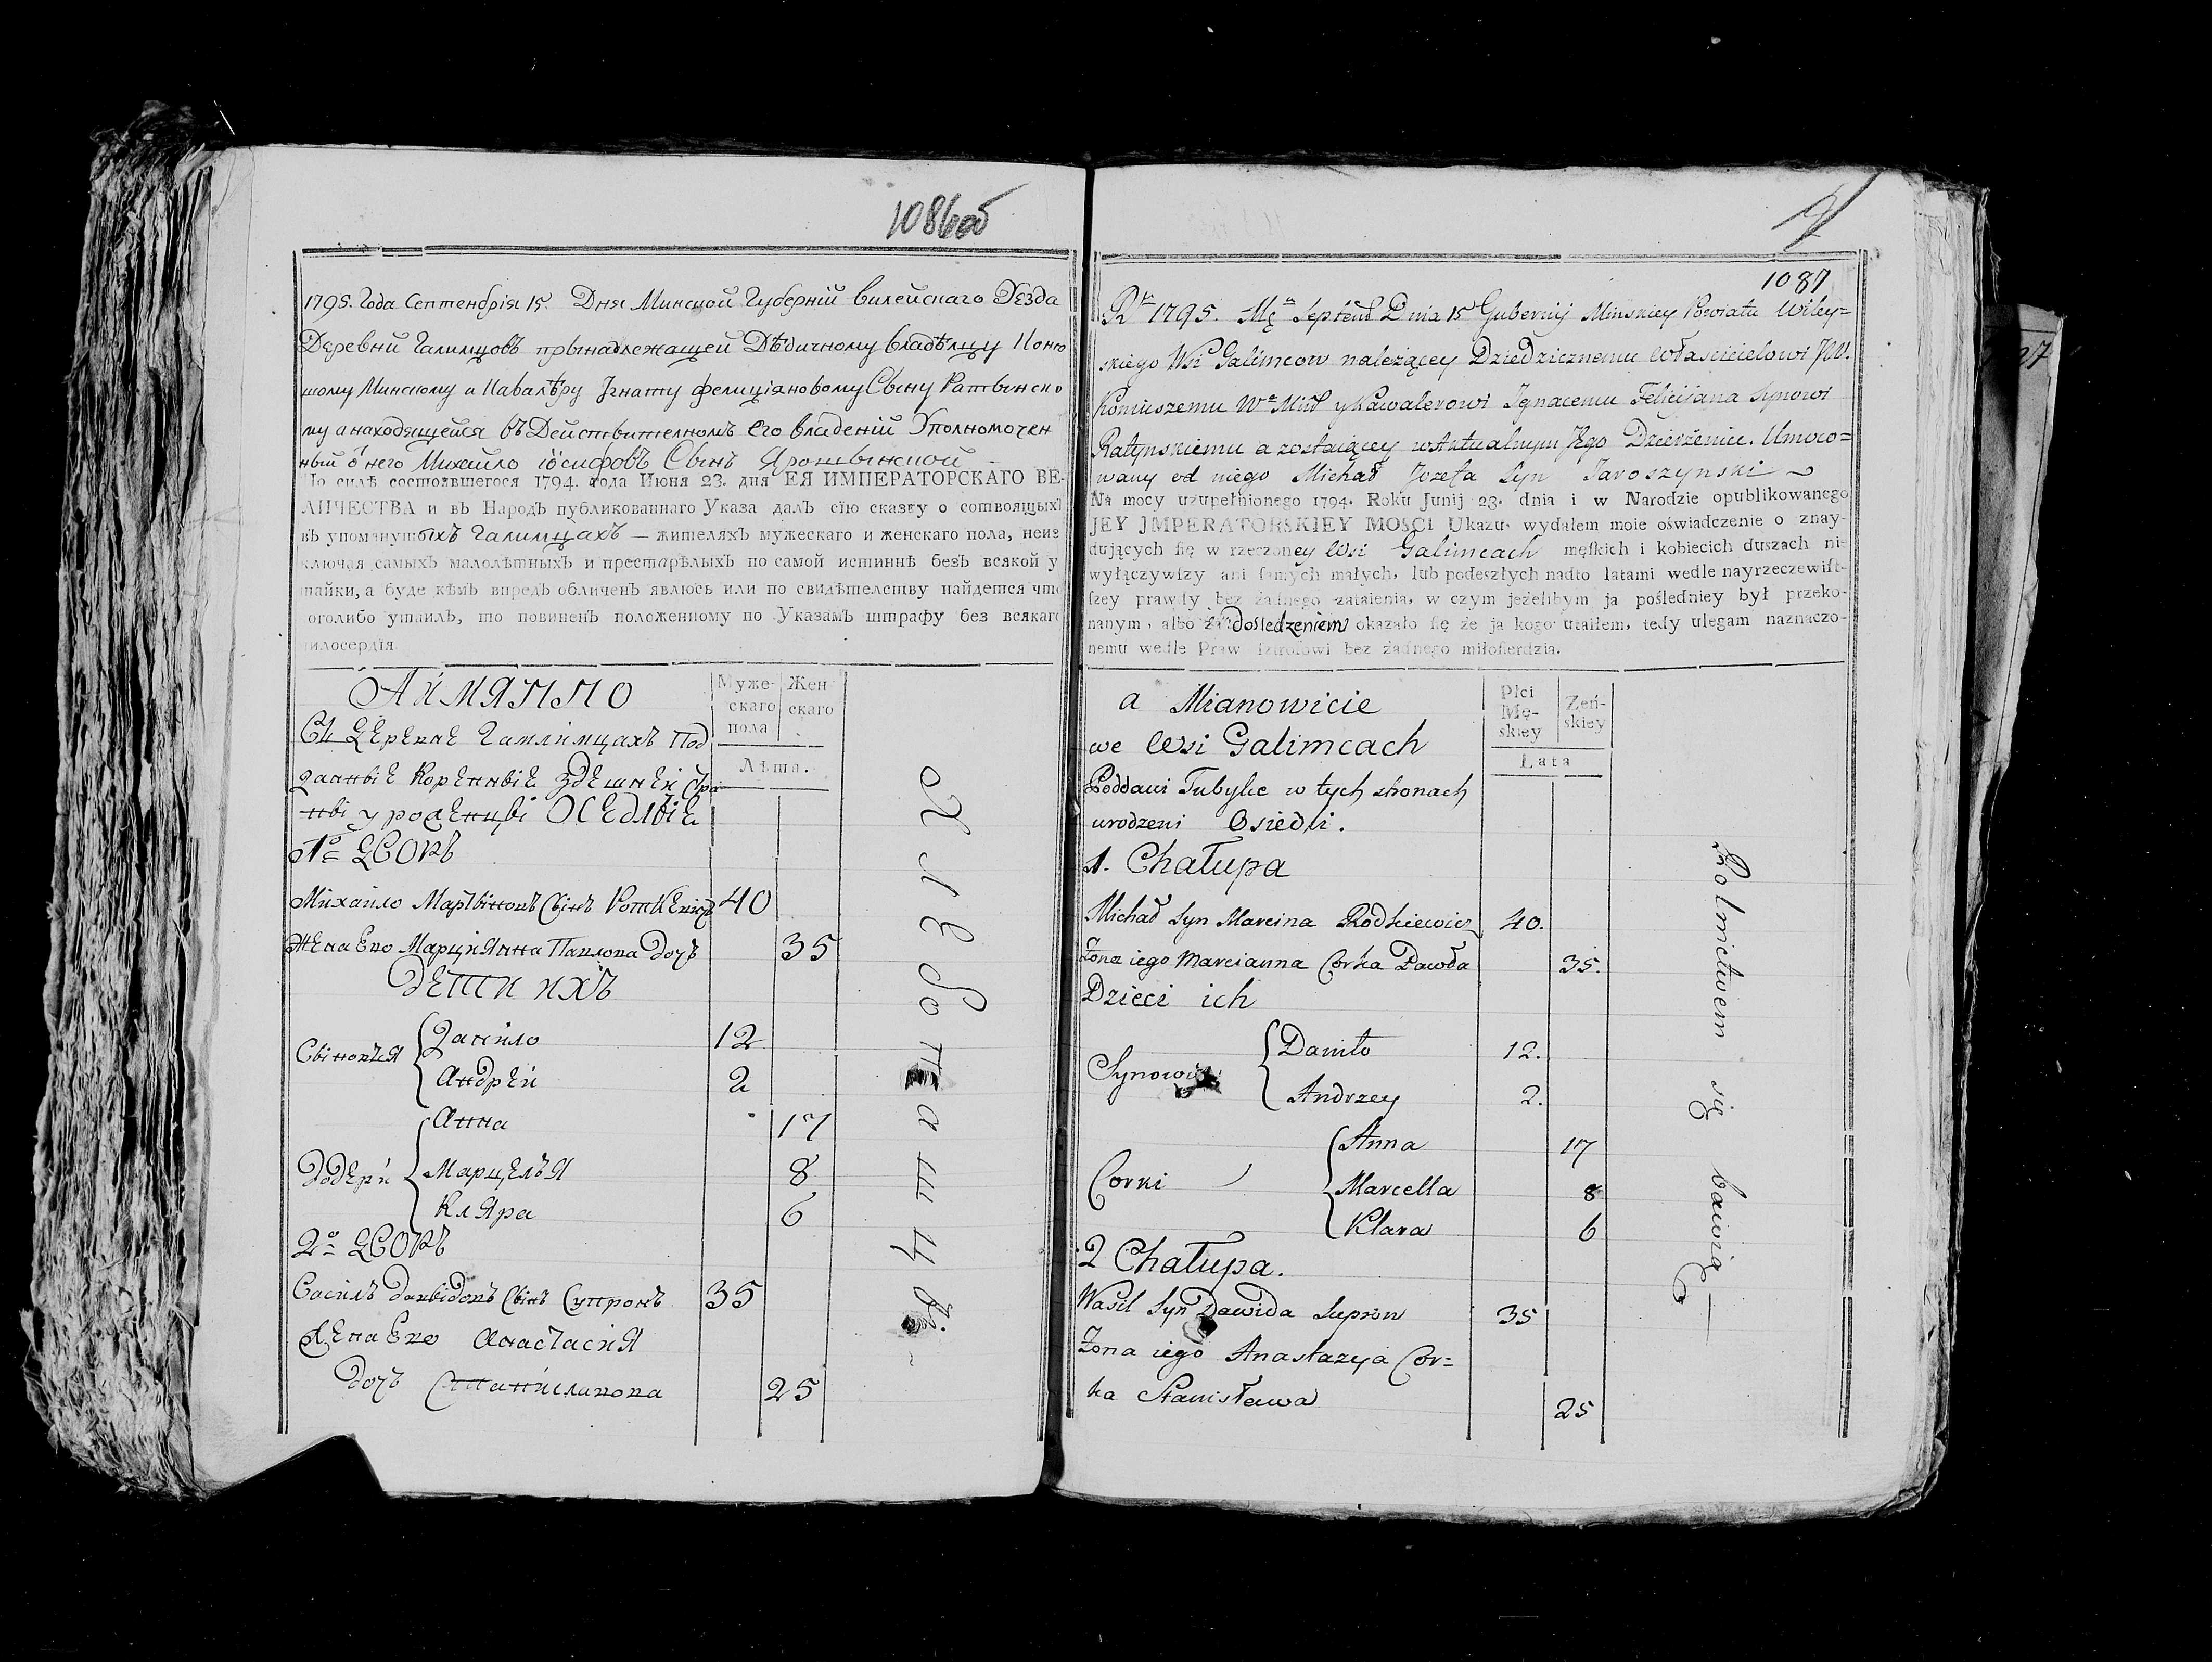 1086об
1795. Года Септенбрія 15. Дня Минской Губерніи Вилейскаго Уезда
Деревни Галимцовъ прынадлежащей Дѣдичному Владѣлцу Коню
шому Минскому и Кавалѣру Игнату Фелиціяновому Сыну Ратынско
му а находящейся въ Действителномъ Его владеніи Уполномочен
ный ѿ него Михайло Іосифовъ Сынъ Ярошынской
По силѣ состоявшегося 1794. года Июня 23. дня ЕЯ ИМПЕРАТОРСКАГО ВЕ-
ЛИЧЕСТВА и въ Народъ публикованнаго Указа далъ сїю сказку о сотвоящыхъ
въ упомянутыхъ Галимцахъ — жителяхъ мужескаго и женскаго пола, неиз
ключая самыхъ малолѣтныхъ и престарѣлыхъ по самой истиннѣ безъ всякой у
тайки, а буде кѣмъ впредь обличенъ явлюсь или по свидѣтелству найдется что
кголибо утаилъ, то повиненъ положенному по Указамъ штрафу без всякаго
милосердїя.
Аимянно
Въ Деревне Гамлимцахъ Под
данные Коренные здешней Стра
ны уроденцы Оседлые
Муже-
скаго
пола
Жен
скаго
Лѣта.
1о Дворъ
Михаило Мартыновъ Сынъ Роткевичъ 40
Жена Его Марциянна Павлова Дочъ 35
Дети ихъ
Сыновъя
Данило 12
Андрей 2
Дочери
Анна 17
Марцелъя 8
Кляра 6
2о Дворъ
Василъ Давыдовъ Сынъ Супронъ 35
Жена Его Анастасия
Дочъ Станиславова 25
Хлебопашцы
1087
Rku 1795. Mca Septembr Dnia 15 Gubernij Minskiey Powiatu Wiley=
skiego Wsi Galimcow należącey Dziedzicznemu Właścicielowi JW.
Koniuszemu Wa Miń y Kawalerowi Ignacemu Felicjana Synowi
Ratynskiemu a zostaiącey w Aktualnym Jego Dzierżeniu. Umoco=
wany od niego Michał Jozefa Syn Jaroszynski
Na mocy uzupełnionego 1794. Roku Junij 23. dnia i w Narodzie opublikowanego
JEY JMPERATORSKIEY MOSCI Ukazu. wydałem moie oświadczenie o znay-
duiących się w rzeczoney Wsi Galimcach męskich i kobiecich duszach nie
wyłączywszy ani samych małych, lub podeszłych nadto latami wedle nayrzeczewist-
szey prawdy bez żadnego zataienia, w czym jeżelibym ja pośledniey był przeko-
nanym, albo za dośledzeniem okazało się że ja kogo utaiłem, tedy ulegam naznaczo-
nemu wedle Praw sztrofowi bez żadnego miłosierdzia.
a Mianowicie
we Wsi Galimcach
Poddani Tubylce w tych stronach
urodzeni Osiedli.
Płci
Mę-
skiey
Żeń-
skiey
Lata
1. Chałupa
Michał Syn Marcina Rodkiewicz 40.
Żona iego Marcianna Corka Pawła 35.
Dzieci ich
Synowie
Daniło 12.
Andrzey 2.
Corki
Anna 17
Marcella 8
Klara 6
2 Chałupa.
Wasil Syn Dawida Supron 35
Żona iego Anastazya Cor=
ka Stanisława 25
Rolnictwem się bawią
27